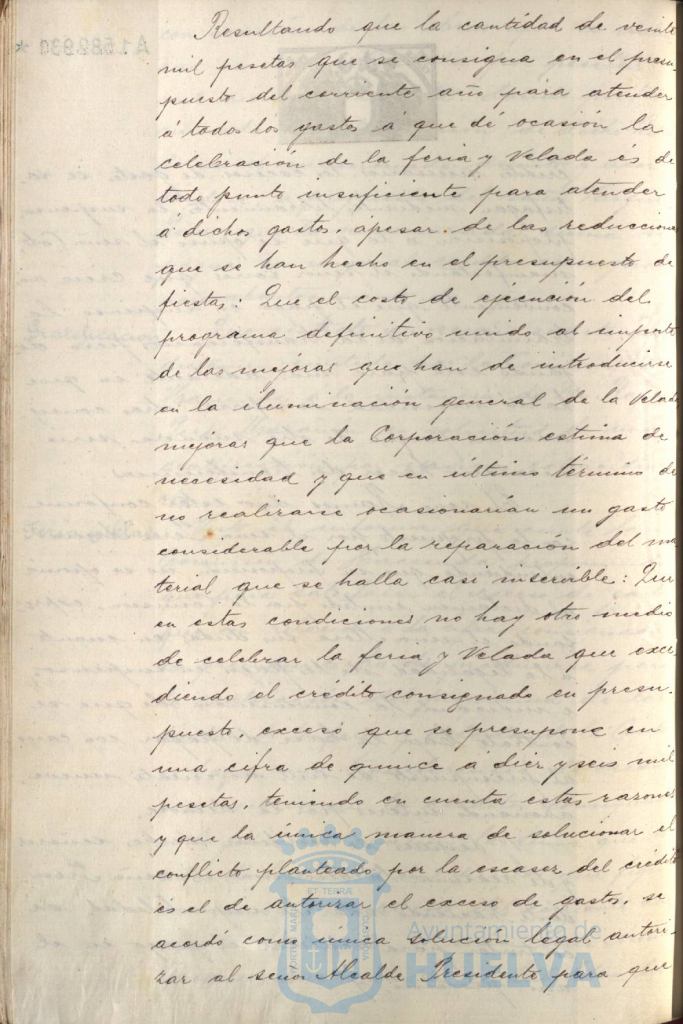 A1.582.930 *
Resultando que la cantidad de veinte
mil pesetas que se consigna en el presu-
puesto del corriente año para atender
á todos los gastos á que dé ocasión la
celebración de la feria y Velada és de
todo punto insuficiente para atender
á dichos gastos, apesar de las reducciones
que se han hecho en el presupuesto de
fiestas: Que el costo de ejecución del
programa definitivo unido al importe
de las mejoras que han de introducirse
en la iluminación general de la Velada
mejoras que la Corporación estima de
necesidad y que en último término de
no realizarse ocasionarían un gasto
considerable por la reparación del ma
terial que se halla casi inservible: Que
en estas condiciones no hay otro medio
de celebrar la feria y Velada que exce
diendo el crédito consignado en presu-
puesto, exceso que se presupone en
una cifra de quince á diez y seis mil
pesetas, teniendo en cuenta estas razones
y que la única manera de solucionar el
conflicto planteado por la escasez del crédito
és el de autorizar el exceso de gastos, se
acordó como única solución legal autori-
zar al señor Alcalde Presidente para que
Ayuntamiento de
HUELVA